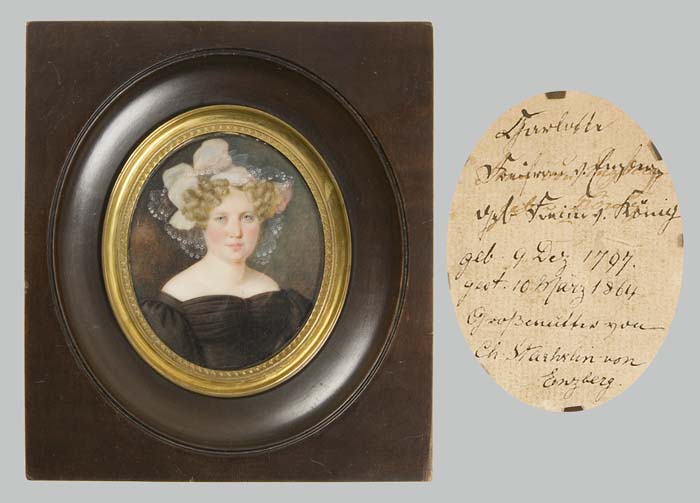 Charlotte
Freifrau v. Enzberg
geb. Freiin v. König
geb. 9 Dez 1797.
gest. 10 März 1864
Großmutter von
Ch. Staehelin-von
Enzberg.